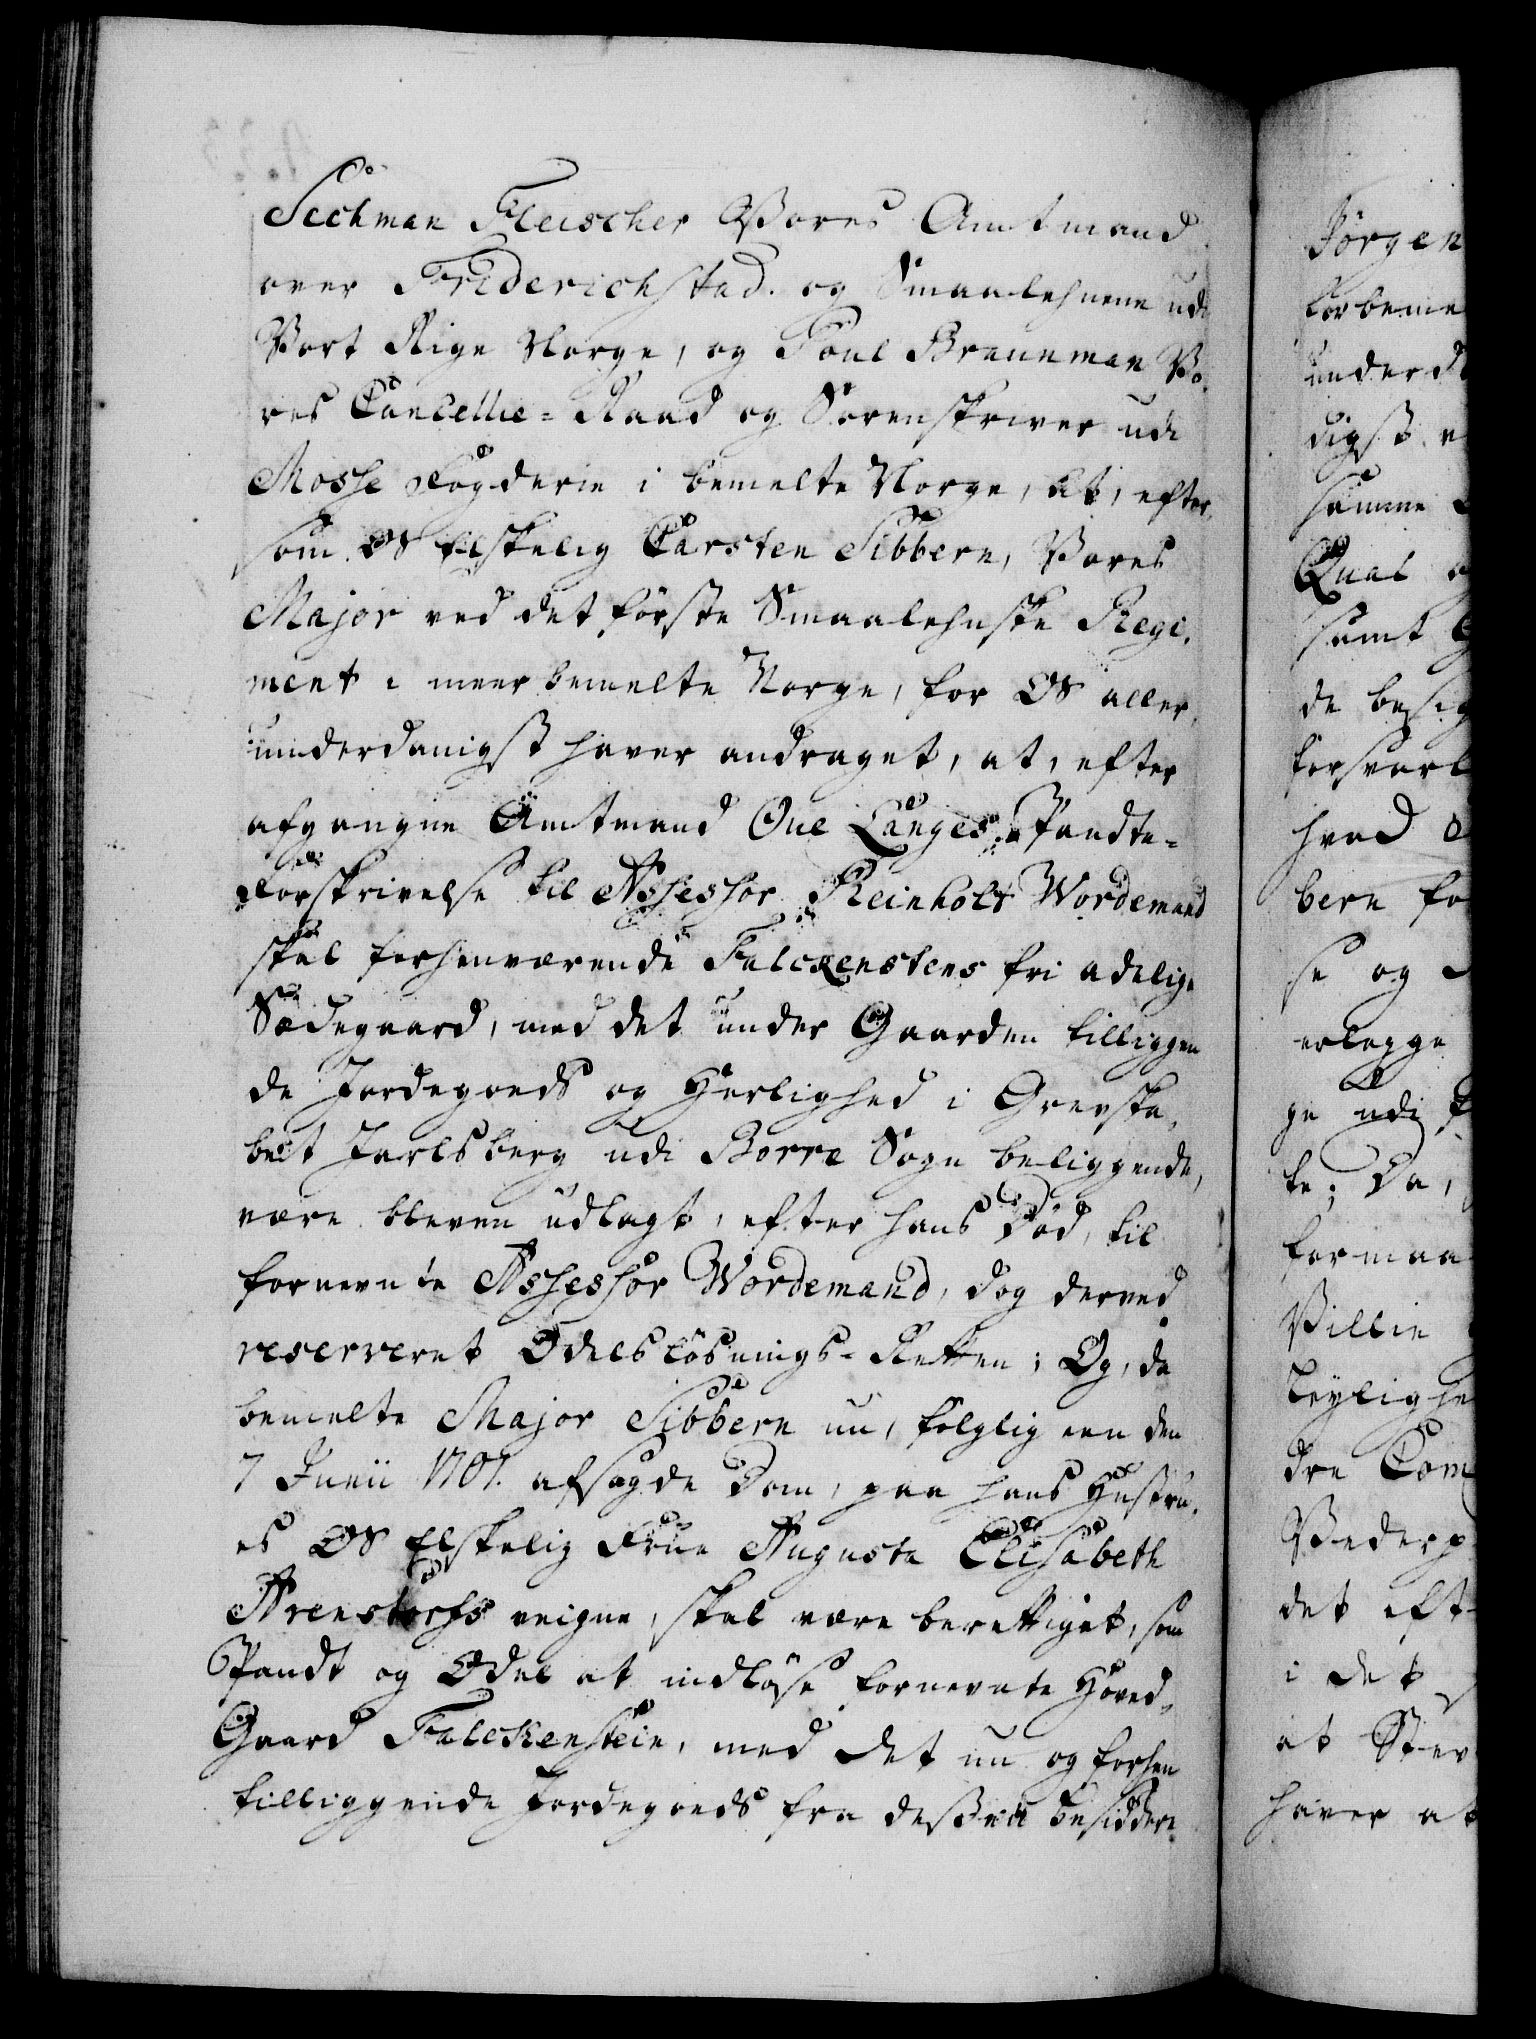 Sechman Fleischer Vores Amtmand
over Friderichstad. og Smaalehnene udi
Vort Rige Norge, og Poul Brenneman Vo-
res Cancellie-Raad og Sorenskriver udi
Mosse Fogderie i bemelte Norge, At, efter-
som OS Elskelig Carsten Sibbern, Vores
Major ved det første Smaalehnske Regi-
ment i meerbemelte Norge, for OS aller-
underdanigst haver andraget, at, efter
afgangne Amtmand Ove Langes Pandte-
Forskrivelse til Assessor Reinholt Wordemand
skal forhenværende Falckenstens fri adelige
Sædegaard, med det under Gaarden tilliggen
de Jordegoeds og Herlighed i Grevska-
bet Jarlsberg udi Borre Sogn beliggende,
være bleven udlagt, efter hans Død, til
fornevnte Assessor Wordemand, dog derved
reserveret Odelsløsnings-Retten; Og, da
bemelte Major Sibbern nu, følglig een den
7 Junii 1707. afsagde Dom, paa hans Hustru-
es OS Elskelig Frue Augusta Elisabeth
Arenstorfs veigne, skal være berettiget, som
Pandt og Odel at indløse fornevnte Hoved-
Gaard Falckenstein, med det nu og forhen
tilliggende Jordegoeds fra desen besiddere
Jørgen
forbeme
underd
digst
samme
Qual
samt
de besig
forsvarl
hvad
bern fo
se og
erlegge
ge udi
te; Da,
formaa
Villie
leylighe
dre Com
Vederp
det eft
i det
at Stev
haver at